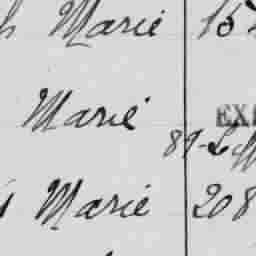 Marie 15
Marie EX
89-
Marie 208